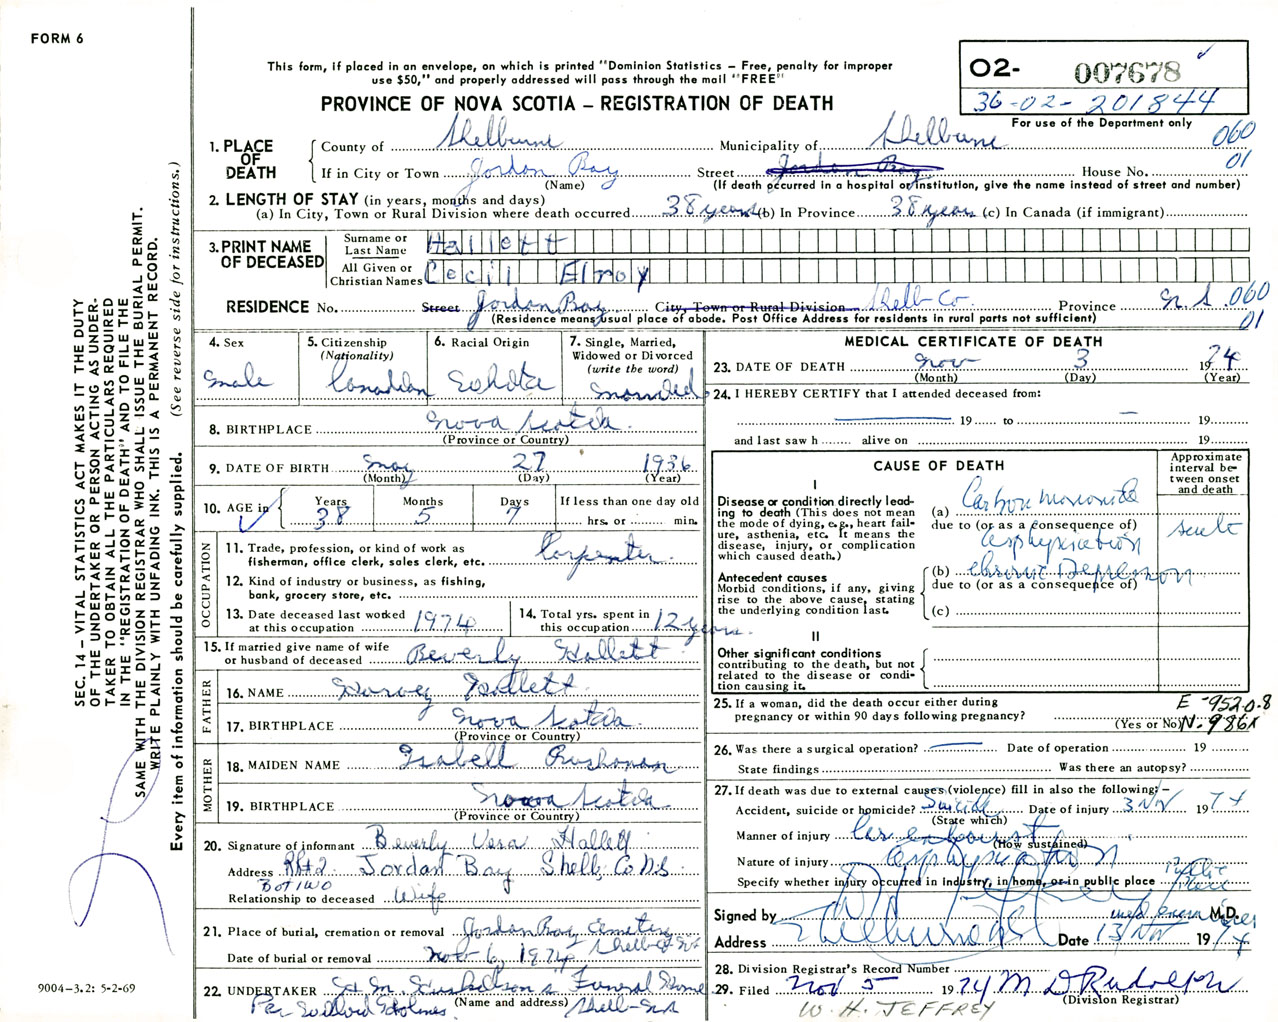 FORM 6
This form, if placed in an envelope, on which is printed "Dominion Statistics – Free, penalty for improper
use $50," and properly addressed will pass through the mail "FREE"
PROVINCE OF NOVA SCOTIA – REGISTRATION OF DEATH
O2- 007678
36-02-201844
For use of the Department only
060
01
1. PLACE OF DEATH
County of Shelburne Municipality of Shelburne
If in City or Town Jordan Bay Street Jordan Bay House No.
(Name) (If death occurred in a hospital or institution, give the name instead of street and number)
2. LENGTH OF STAY (in years, months and days)
(a) In City, Town or Rural Division where death occurred 38 years (b) In Province 38 years (c) In Canada (if immigrant)
3. PRINT NAME OF DECEASED
Surname or Last Name Hallett
All Given or Christian Names Cecil Elroy
RESIDENCE No. Street Jordan Bay City, Town or Rural Division Shelb Co Province N.S. 060
01
(Residence means usual place of abode. Post Office Address for residents in rural parts not sufficient)
4. Sex
Male
5. Citizenship
(Nationality)
Canadian
6. Racial Origin
7. Single, Married,
Widowed or Divorced
(write the word)
Married
8. BIRTHPLACE Nova Scotia
(Province or Country)
9. DATE OF BIRTH May 27 1936
(Month) (Day) (Year)
10. AGE in
Years Months Days If less than one day old
38 5 7 hrs. or min.
OCCUPATION
11. Trade, profession, or kind of work as
fisherman, office clerk, sales clerk, etc. Carpenter
12. Kind of industry or business, as fishing,
bank, grocery store, etc.
13. Date deceased last worked
at this occupation 1974
14. Total yrs. spent in
this occupation 12 years.
15. If married give name of wife
or husband of deceased Beverly Hallett
FATHER
16. NAME Harvey Hallett
17. BIRTHPLACE Nova Scotia
(Province or Country)
MOTHER
18. MAIDEN NAME Isabell
19. BIRTHPLACE Nova Scotia
(Province or Country)
20. Signature of informant Beverly Vera Hallett
Address RR#2 Jordan Bay Shelb. Co N.S.
Box two
Relationship to deceased Wife
21. Place of burial, cremation or removal Jordan Bay Cemetery
Date of burial or removal Nov 6, 1974
22. UNDERTAKER Funeral Home
(Name and address) Shelb-N.S
Per Willard Holmes
MEDICAL CERTIFICATE OF DEATH
23. DATE OF DEATH Nov 3 1974
(Month) (Day) (Year)
24. I HEREBY CERTIFY that I attended deceased from:
19 to 19
and last saw h alive on 19
CAUSE OF DEATH
Approximate interval between onset and death
I
Disease or condition directly leading to death (This does not mean the mode of dying, e.g., heart failure, asthenia, etc. It means the disease, injury, or complication which caused death.)
(a) Carbon monoxide
due to (or as a consequence of)
asphyxiation
acute
Antecedent causes
Morbid conditions, if any, giving rise to the above cause, stating the underlying condition last.
(b) Chronic Depression
due to (or as a consequence of)
(c)
II
Other significant conditions
contributing to the death, but not related to the disease or condition causing it.
25. If a woman, did the death occur either during
pregnancy or within 90 days following pregnancy?
(Yes or No)
E-9520.8
N-986X
26. Was there a surgical operation? Date of operation 19
State findings Was there an autopsy?
27. If death was due to external causes (violence) fill in also the following:–
Accident, suicide or homicide? Suicide Date of injury 3 Nov 1974
(State which)
Manner of injury Car exhaust
(How sustained)
Nature of injury asphyxiation
Specify whether injury occurred in Industry, in home, or in public place Public Place
Signed by med examiner M.D.
Address Shelburne N.S. Date 13 Nov 1974
28. Division Registrar's Record Number
29. Filed Nov 5 1974 M D Rudolph
(Division Registrar)
W. H. JEFFREY
SEC. 14 – VITAL STATISTICS ACT MAKES IT THE DUTY
OF THE UNDERTAKER OR PERSON ACTING AS UNDER-
TAKER TO OBTAIN ALL THE PARTICULARS REQUIRED
IN THE "REGISTRATION OF DEATH" AND TO FILE THE
SAME WITH THE DIVISION REGISTRAR WHO SHALL ISSUE THE BURIAL PERMIT.
WRITE PLAINLY WITH UNFADING INK. THIS IS A PERMANENT RECORD.
Every item of information should be carefully supplied. (See reverse side for instructions.)
9004-3.2: 5-2-69